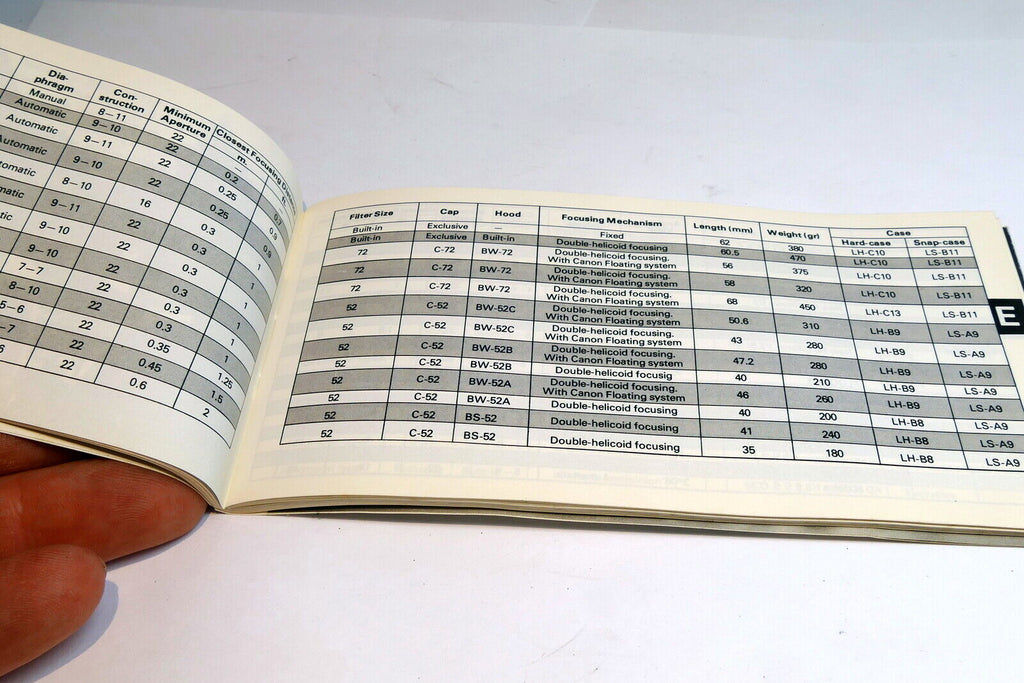 Dia-
phragm
Con-
struction
Minimum
Aperture
Closest Focusing
m.
Manual 8—11 22 —
Automatic 9—10 22 0.2
Automatic 9—11 22 0.25
Automatic 9—10 22 0.25
8—10 16 0.3
9—11 22 0.3
9—10 22 0.3 1
9—10 22 0.3 1
7—7 22 0.3 1
8—10 22 0.35 1
5—6 22 0.45 1.25
22 0.6 1.5
22 2
Filter Size Cap Hood Focusing Mechanism Length (mm) Weight (gr) Case
Hard-case Snap-case
Built-in Exclusive — Fixed 62 380 LH-C10 LS-B11
Built-in Exclusive Built-in Double-helicoid focusing 60.5 470 LH-C10 LS-B11
72 C-72 BW-72 Double-helicoid focusing.
With Canon Floating system 56 375 LH-C10 LS-B11
72 C-72 BW-72 Double-helicoid focusing.
With Canon Floating system 58 320 LH-C10 LS-B11
72 C-72 BW-72 Double-helicoid focusing.
With Canon Floating system 68 450 LH-C13 LS-B11
52 C-52 BW-52C Double-helicoid focusing.
With Canon Floating system 50.6 310 LH-B9 LS-A9
52 C-52 BW-52C Double-helicoid focusing.
With Canon Floating system 43 280 LH-B9 LS-A9
52 C-52 BW-52B Double-helicoid focusing.
With Canon Floating system 47.2 280 LH-B9 LS-A9
52 C-52 BW-52B Double-helicoid focusig 40 210 LH-B9 LS-A9
52 C-52 BW-52A Double-helicoid focusing.
With Canon Floating system 46 260 LH-B9 LS-A9
52 C-52 BW-52A Double-helicoid focusing 40 200 LH-B8 LS-A9
52 C-52 BS-52 Double-helicoid focusing 41 240 LH-B8 LS-A9
52 C-52 BS-52 Double-helicoid focusing 35 180 LH-B8 LS-A9
E